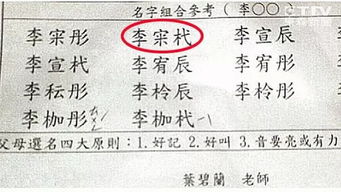 名字組合參考（李〇〇）
李寀彤 李寀杙 李宣辰
李宣杙 李宥辰 李宥彤
李秐彤 李柃辰 李柃彤
李枷彤 李枷杙
父母選名四大原則：1.好記 2.好叫 3.音要亮或有力
葉碧蘭 老師